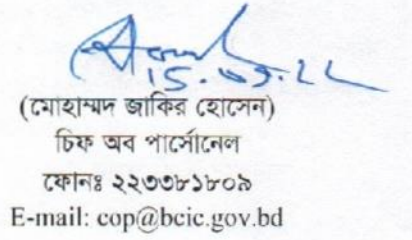 15.09.22
(মোহাম্মদ জাকির হোসেন)
চিফ অব পার্সোনেল
ফোনঃ ২২৩৩৮১৮০৯
E-mail: cop@bcic.gov.bd